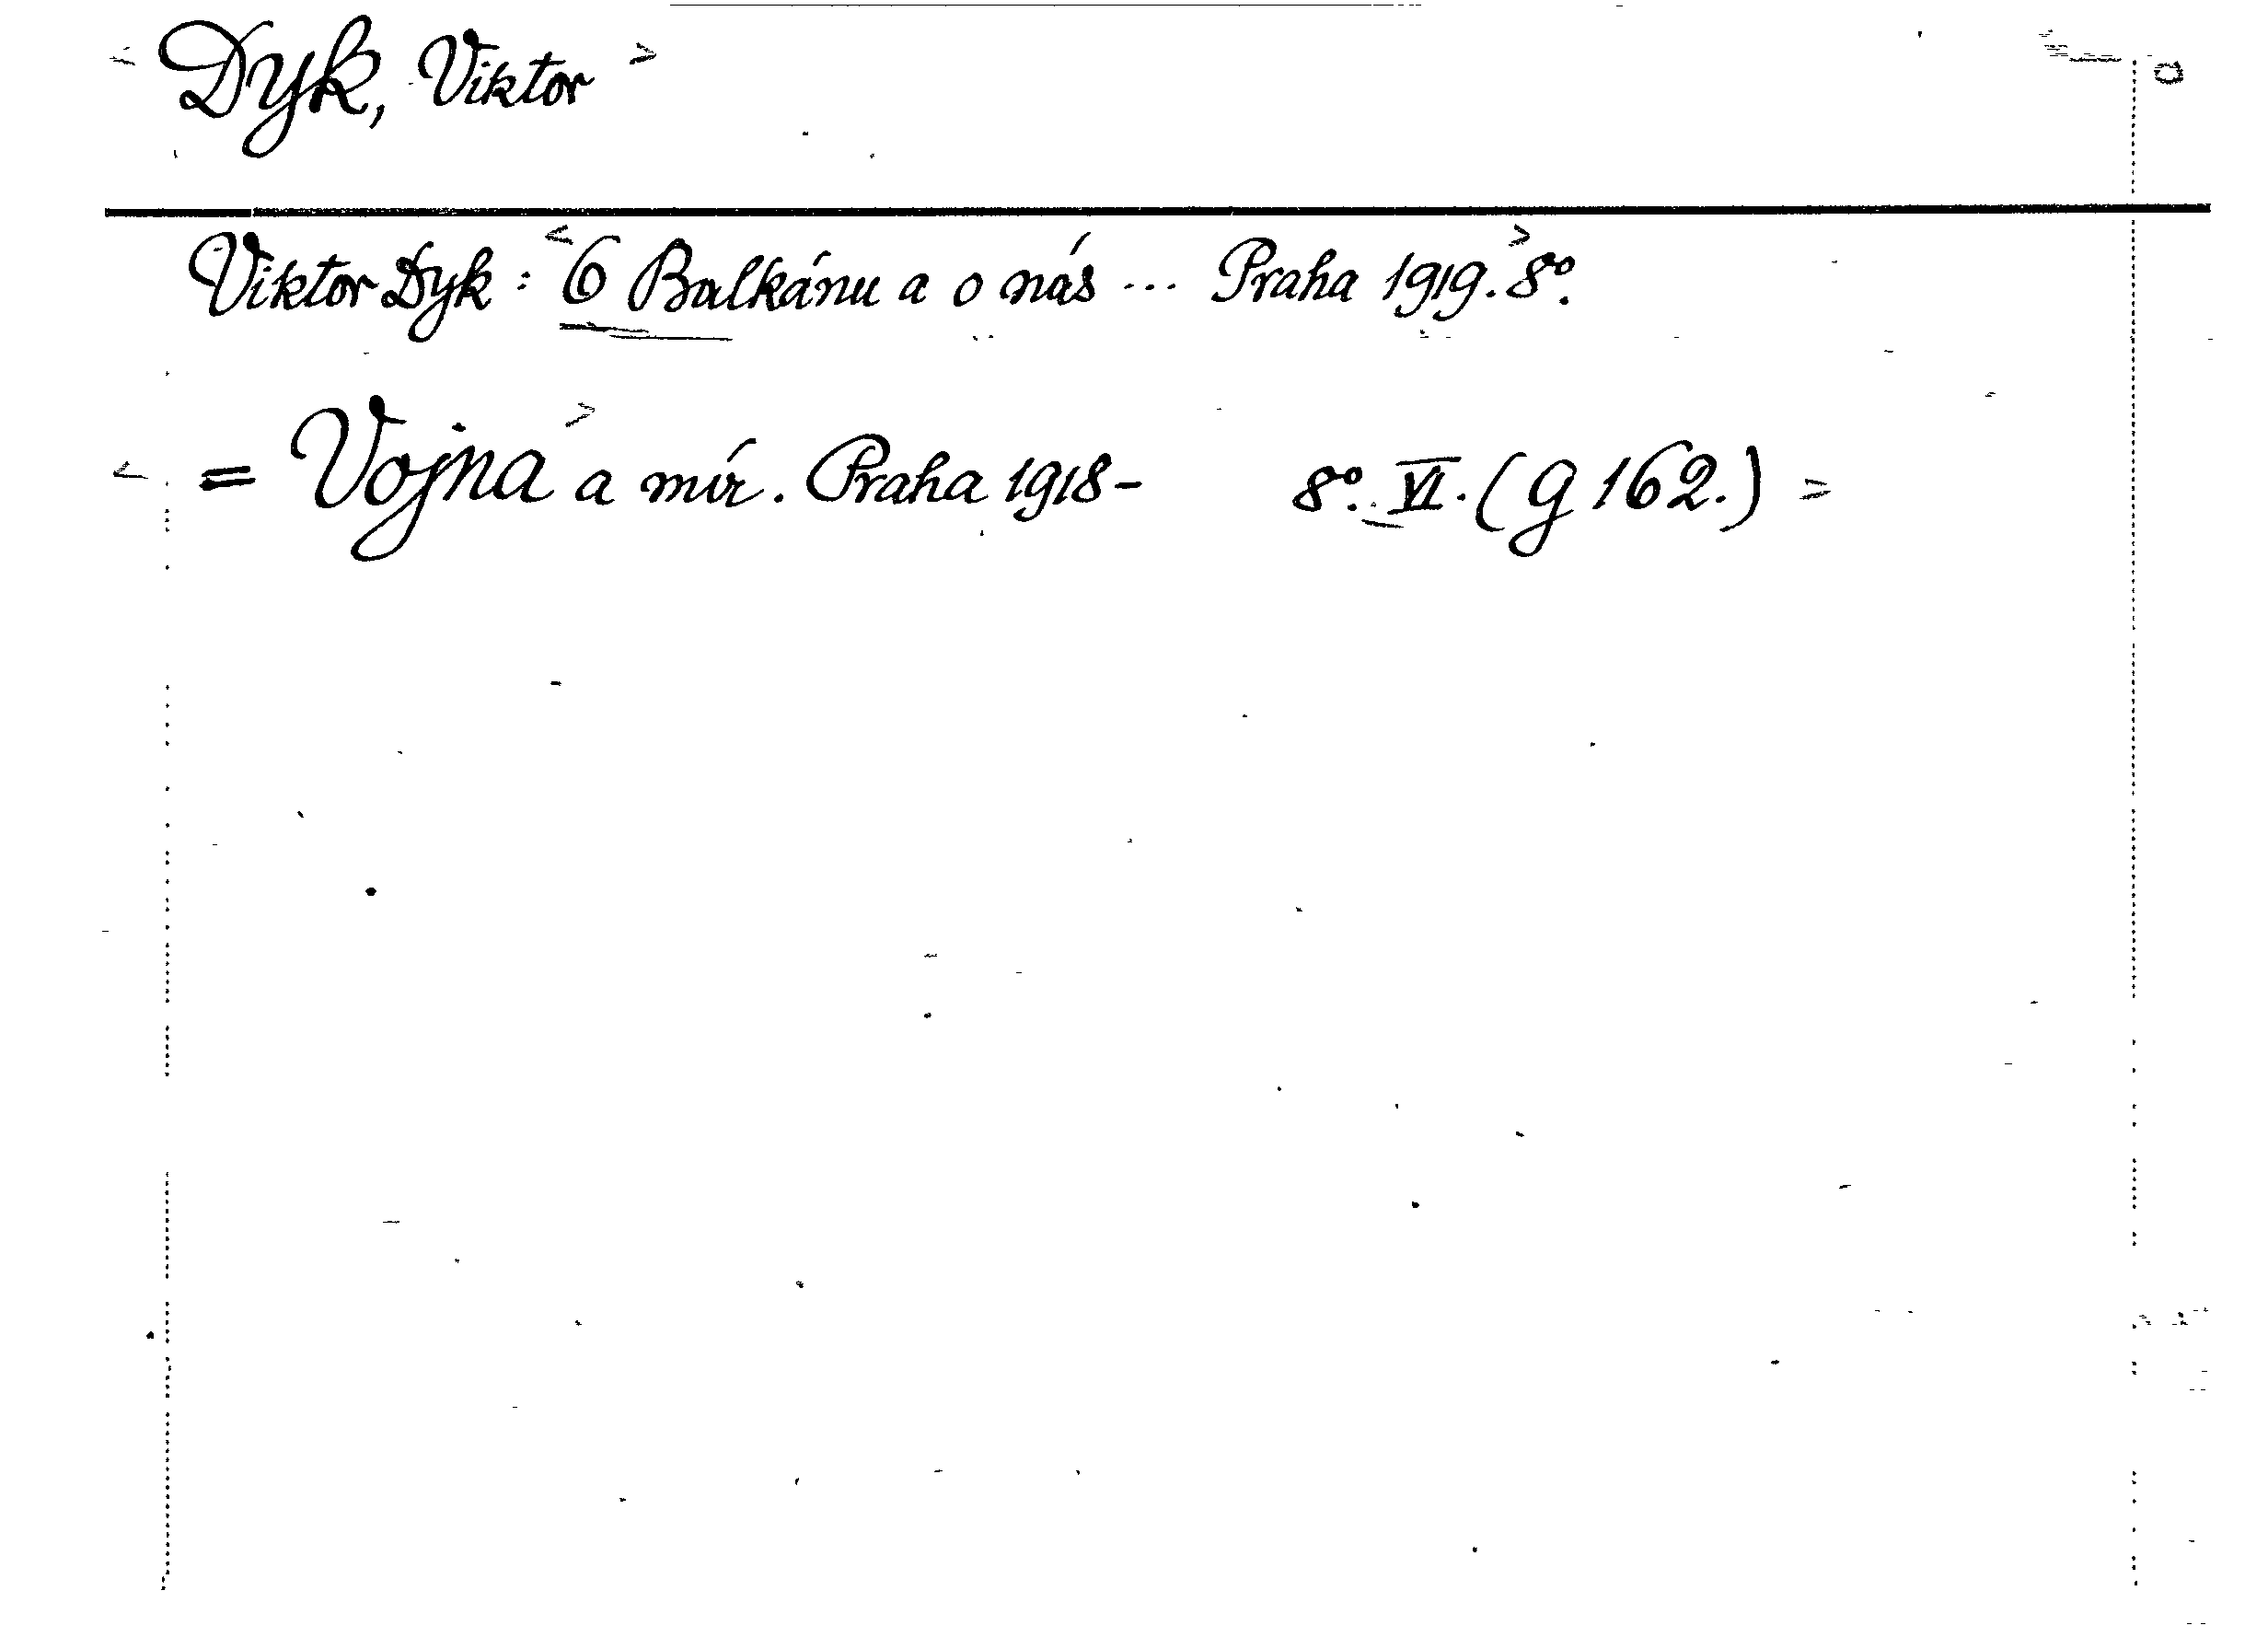 < Dyk, Viktor >
Viktor Dyk : < O Balkánu a o nás ... Praha 1919. > 8°.
< = Vojna > a mír. Praha 1918- 8°. VI. (g 162.) =